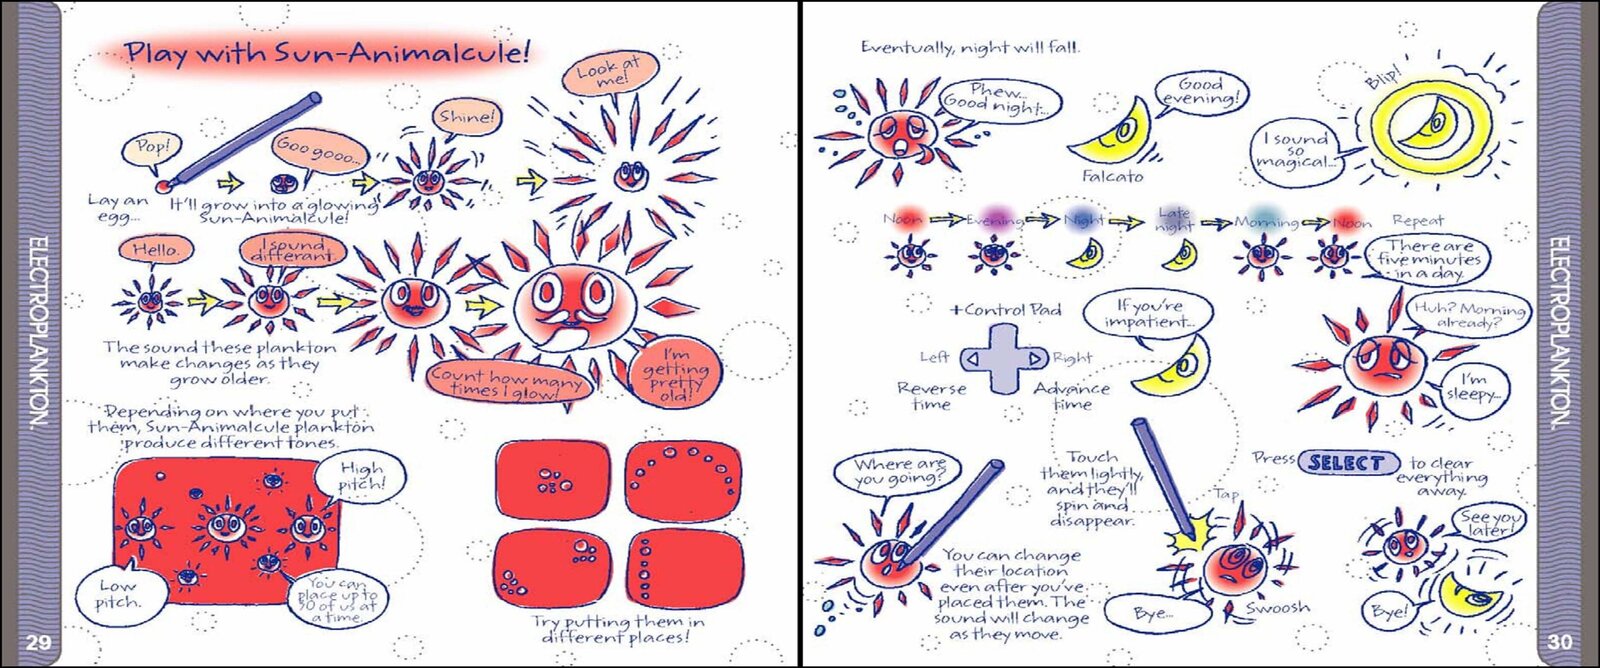 Play with Sun-Animalcule!
Look at
me!
Shine!
Pop!
Goo gooo...
Lay an
egg...
It'll grow into a glowing
Sun-Animalcule!
Hello.
I sound
differant.
The sound these plankton
make changes as they
grow older.
Count how many
times I glow!
I'm
getting
pretty
old!
Depending on where you put
them, Sun-Animalcule plankton
produce different tones.
High
pitch!
Low
pitch.
You can
place up to
50 of us at
a time.
Try putting them in
different places!
ELECTROPLANKTON.
29
Eventually, night will fall.
Phew...
Good night...
Good
evening!
Falcato
Blip!
I sound
so
magical...
Noon
Evening
Night
Late
night
Morning
Noon
Repeat
There are
five minutes
in a day.
+Control Pad
Left
Right
Reverse
time
Advance
time
If you're
impatient...
Huh? Morning
already?
I'm
sleepy...
Where are
you going?
You can change
their location
even after you've
placed them. The
sound will change
as they move.
Touch
them lightly,
and they'll
spin and
disappear.
Tap
Bye...
Swoosh
Press SELECT to clear
everything
away.
See you
later!
Bye!
ELECTROPLANKTON.
30